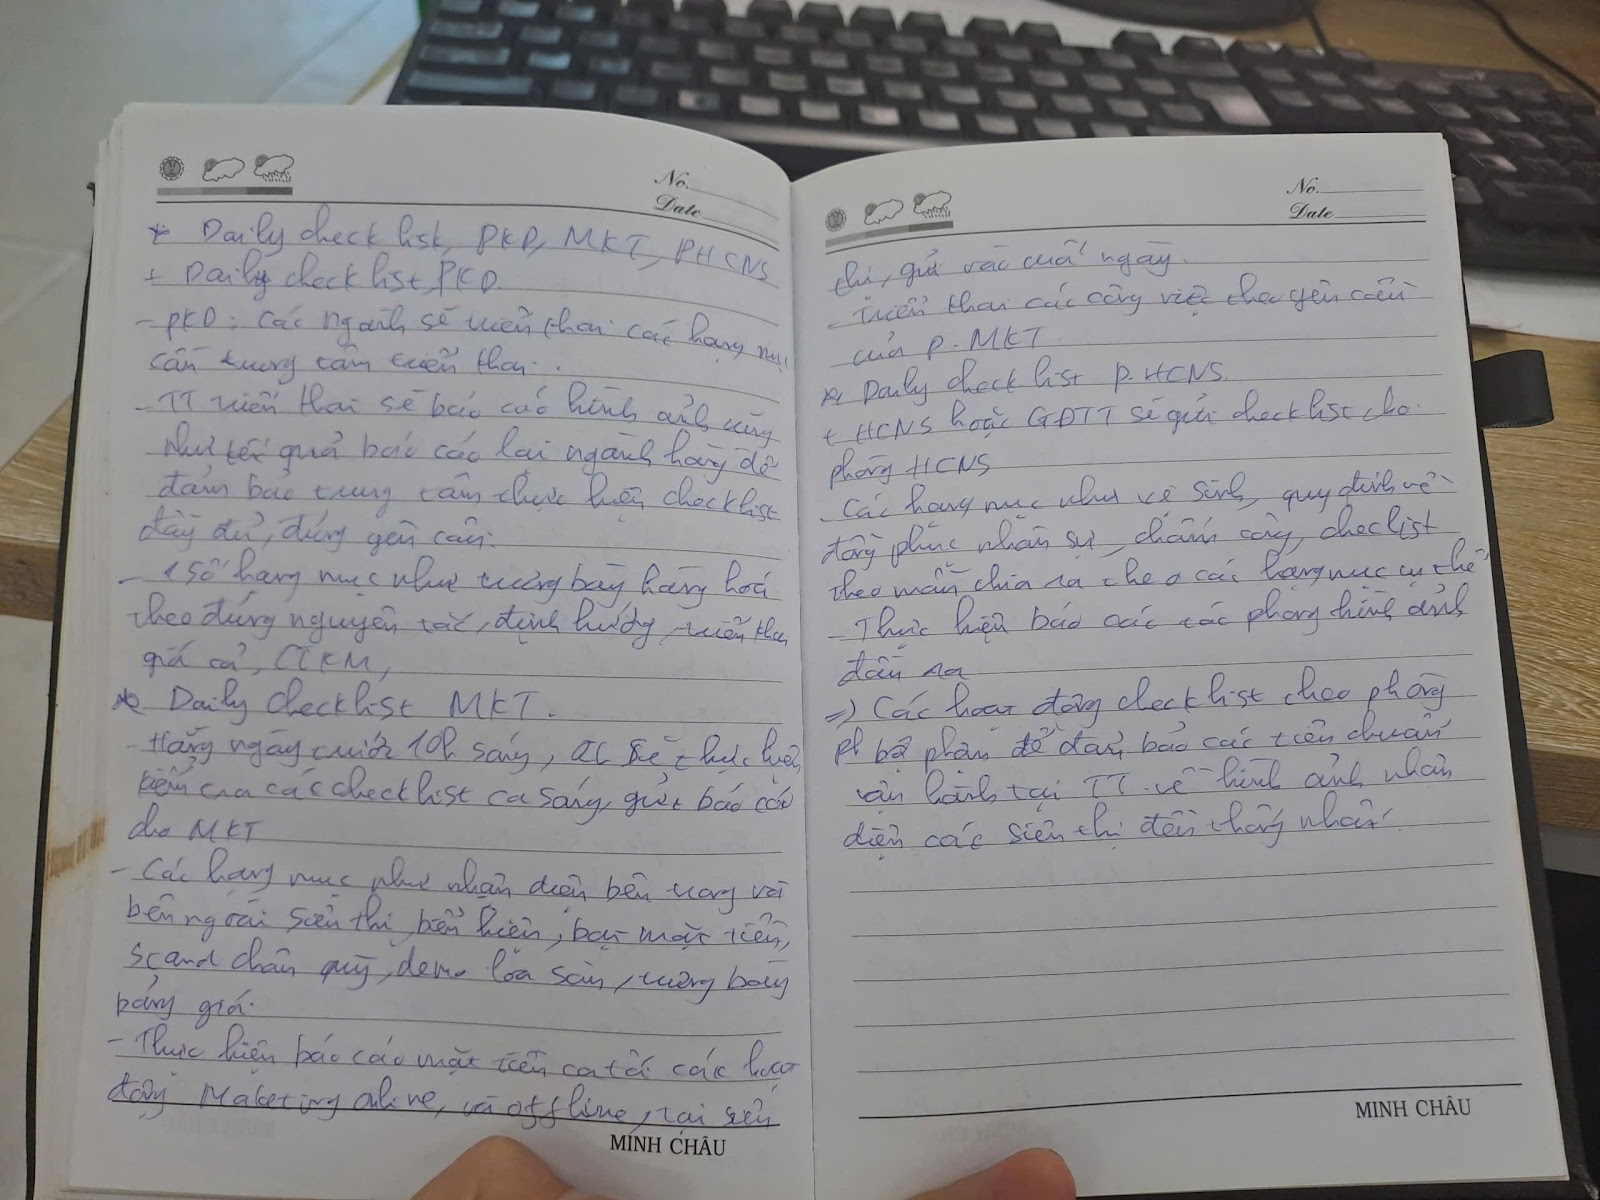 No.
Date
* Daily check list, PKD, MKT, PHCNS
+ Daily check list, PKD
- PKD: Các ngành sẽ triển khai các hạng mục
cần trung tâm triển khai.
- TT triển khai sẽ báo cáo hình ảnh cũng
như kết quả báo cáo lại ngành hàng để
đảm bảo trung tâm thực hiện checklist
đầy đủ, đúng yên cầu.
- 1 số hạng mục như trưng bày hàng hoá
theo đúng nguyên tắc, định hướng, triển khai
giá cả, CTKM,
* Daily checklist MKT.
- Hằng ngày trước 10h sáng, sẽ thực hiện
kiểm tra các checklist ca sáng, gửi báo cáo
cho MKT
- Các hạng mục như nhận diện bên trong và
bên ngoài siêu thị, biển hiện, bạt mặt tiền,
Scand chân quỳ, demo loa sàn, trưng bày
bảng giá.
- Thực hiện báo cáo mặt tiền ca tối các hoạt
động Maketing online, và offline, tại siêu
MINH CHÂU
No.
Date
thị, gửi vào cuối ngày.
- Triển khai các công việc theo yên cầu
của P. MKT
* Daily check list P. HCNS.
+ HCNS hoặc GĐTT sẽ gửi checklist cho
phòng HCNS
- Các hạng mục như vệ sinh, quy định về
đồng phục nhân sự, chấm công, checlist
theo mẫu chia ra theo các hạng mục cụ thể
- Thực hiện báo cáo các phòng hình ảnh
đầu ra
=> Các hoạt động checklist theo phòng
bộ phận để đảm bảo các tiêu chuẩn
vận hành tại TT về hình ảnh nhận
diện các siêu thị đều thống nhất.
MINH CHÂU